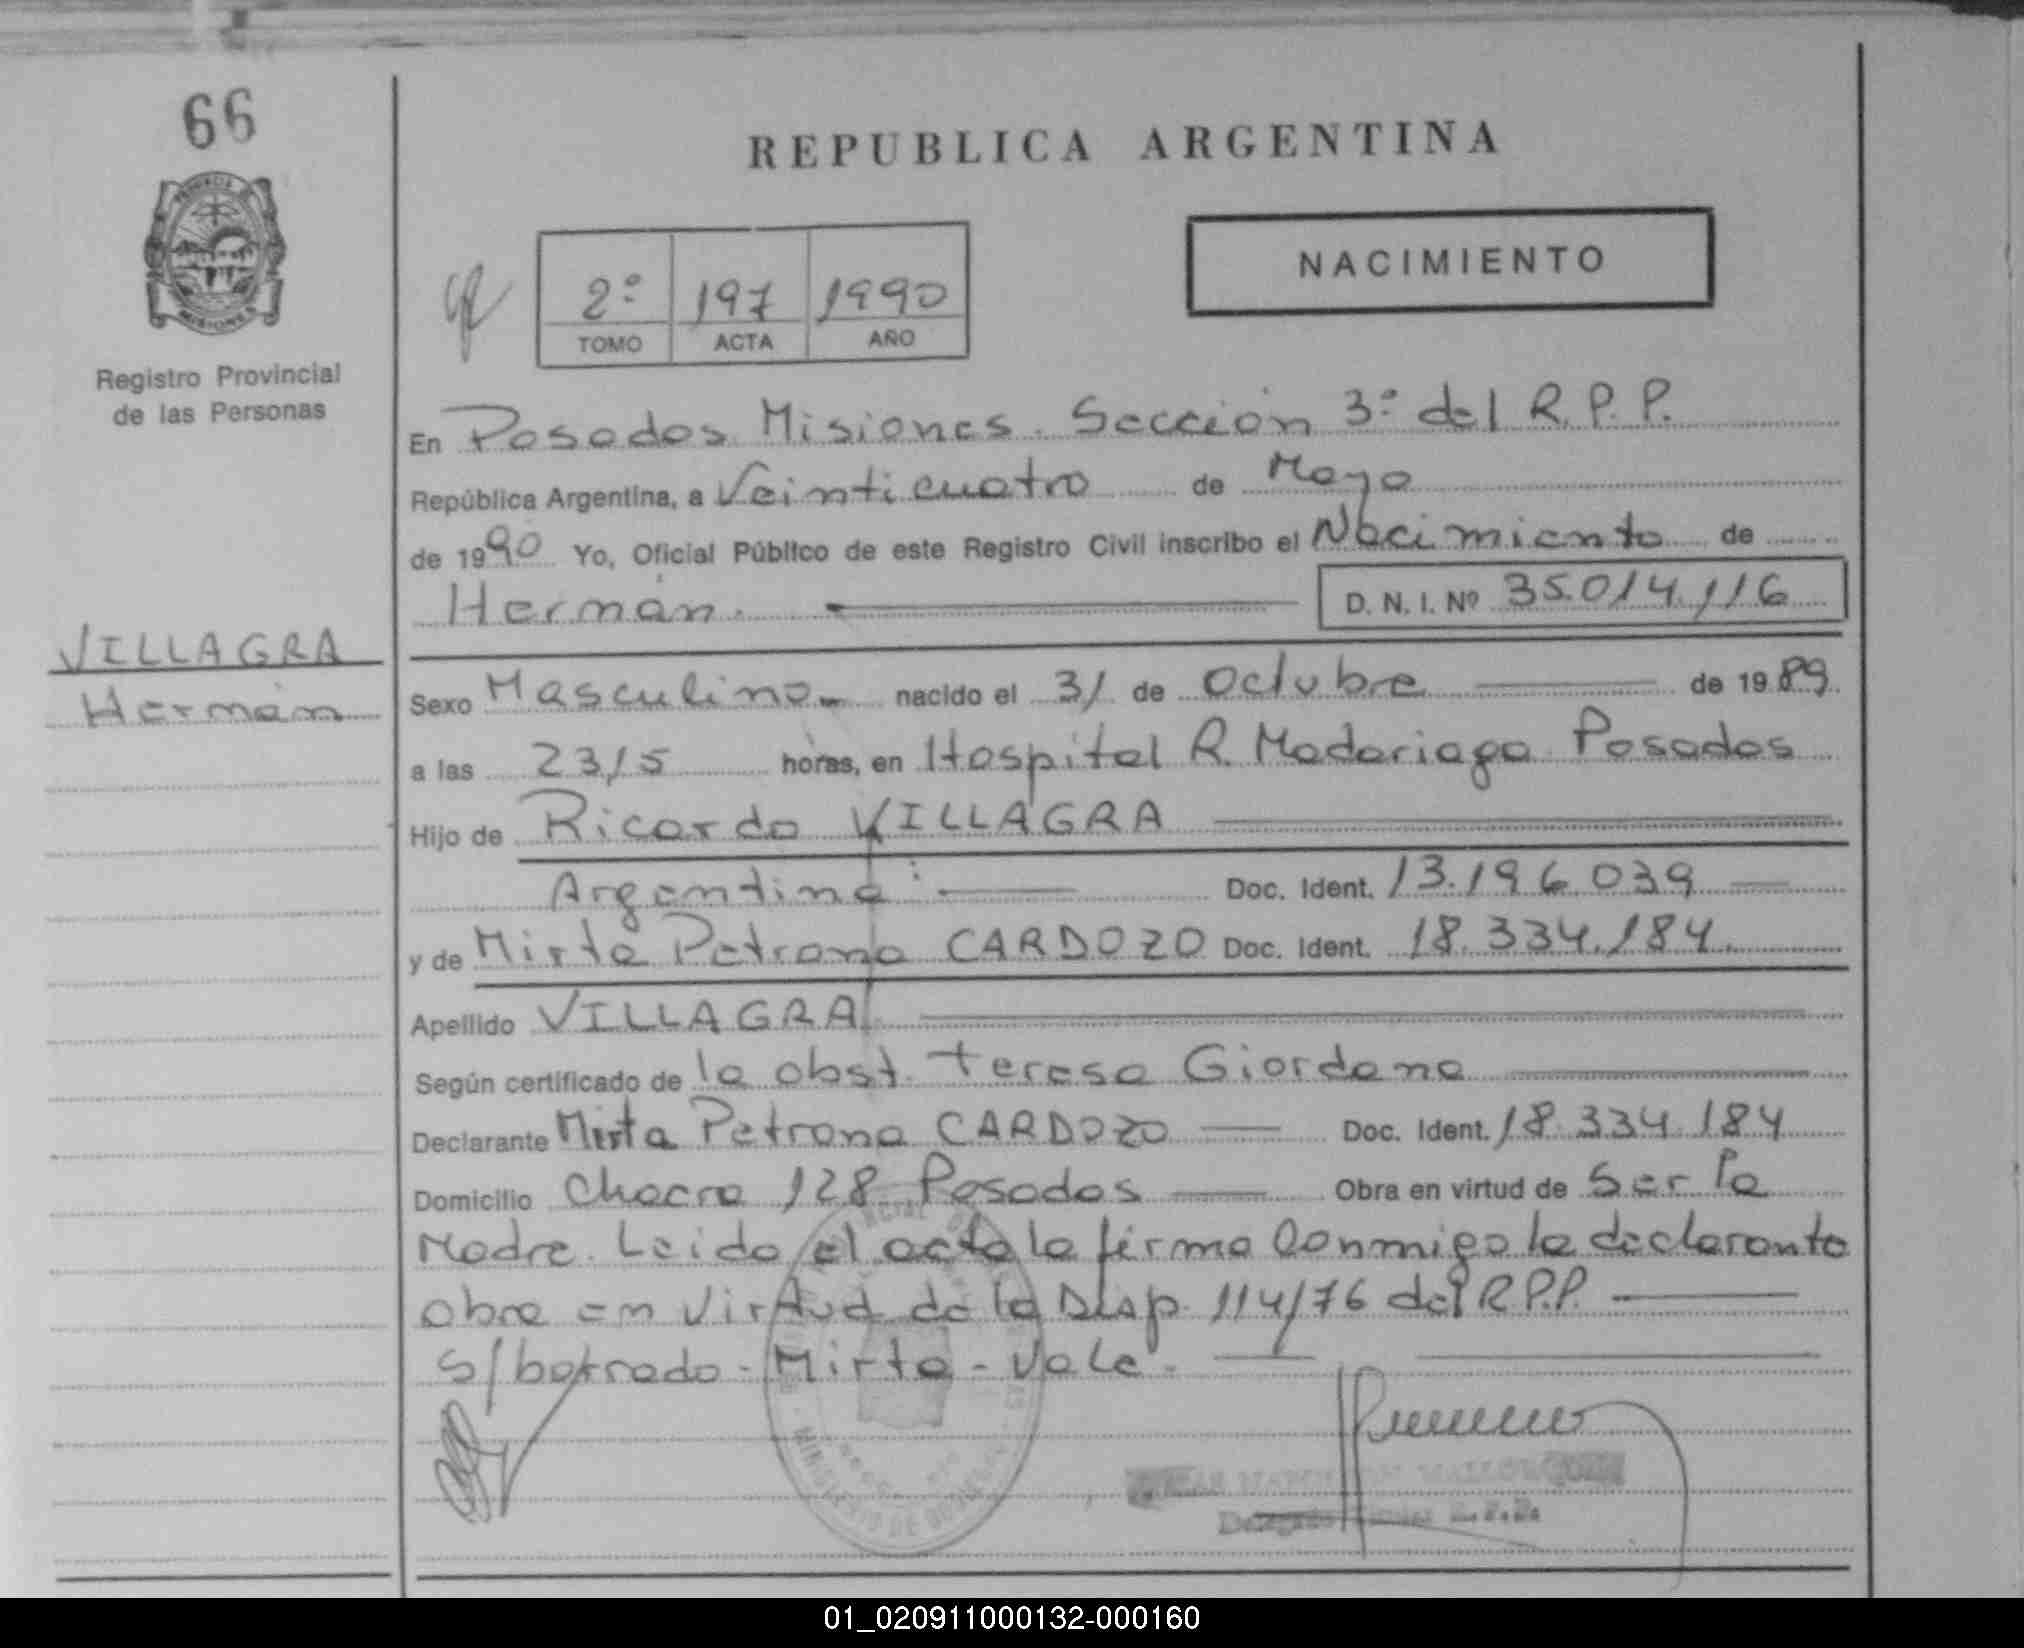 66
REPUBLICA ARGENTINA
NACIMIENTO
2º 197 1990
TOMO ACTA AÑO
MISIONES
Registro Provincial
de las Personas
En Posadas Misiones. Sección 3º del R.P.P.
República Argentina, a Veinticuatro de Mayo
de 1990 Yo, Oficial Público de este Registro Civil inscribo el Nacimiento de
Hernán. D. N. I. Nº 35.014.116
VILLAGRA
Hernán
Sexo Masculino nacido el 31 de Octubre de 1989
a las 2315 horas, en Hospital R. Madariaga Posadas
Hijo de Ricardo VILLAGRA
Argentina Doc. Ident. 13.196.039
y de Mirta Petrona CARDOZO Doc. Ident. 18.334.184
Apellido VILLAGRA
Según certificado de la obst. Teresa Giordano
Declarante Mirta Petrona CARDOZO Doc. Ident. 18.334.184
Domicilio Chacra 128 Posadas Obra en virtud de Ser la
Madre. Leido el acta la firma Conmigo la declarante
obra en Virtud de la Disp. 114/76 del R.P.P.
s/borrado - Mirta - Vale.
01_020911000132-000160